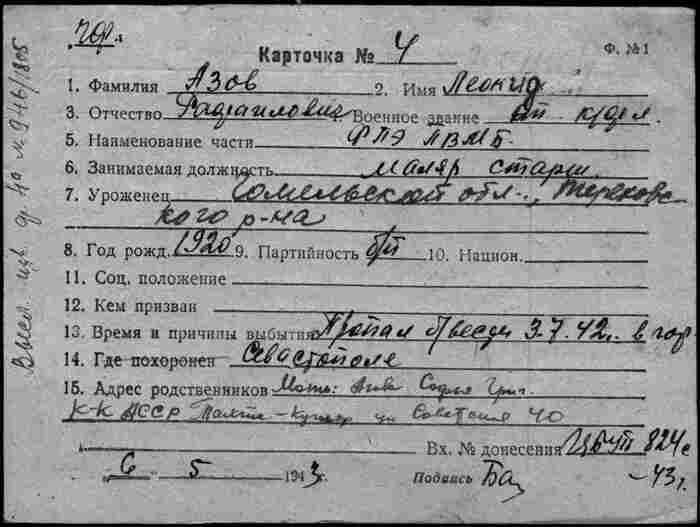 Карточка № 4
Ф. №1
1. Фамилия Азов 2. Имя Леонид
3. Отчество Рафаилович Военное звание ст. кр-фл.
5. Наименование части ПВМБ
6. Занимаемая должность маляр старш.
7. Уроженец Гомельской обл., Терехов-
ского р-на
8. Год рожд. 1920 9. Партийность б/п 10. Национ.
11. Соц. положение
12. Кем призван
13. Время и причины выбытия Пропал б/вести 3.7.42г. в гор.
14. Где похоронен Севастополе
15. Адрес родственников Мать: Азова София Григ.
К-К АССР ул Советская 40
Вх. № донесения ЦБУП 824с
"6" 5 1943г. Подпись Ба
-43г.